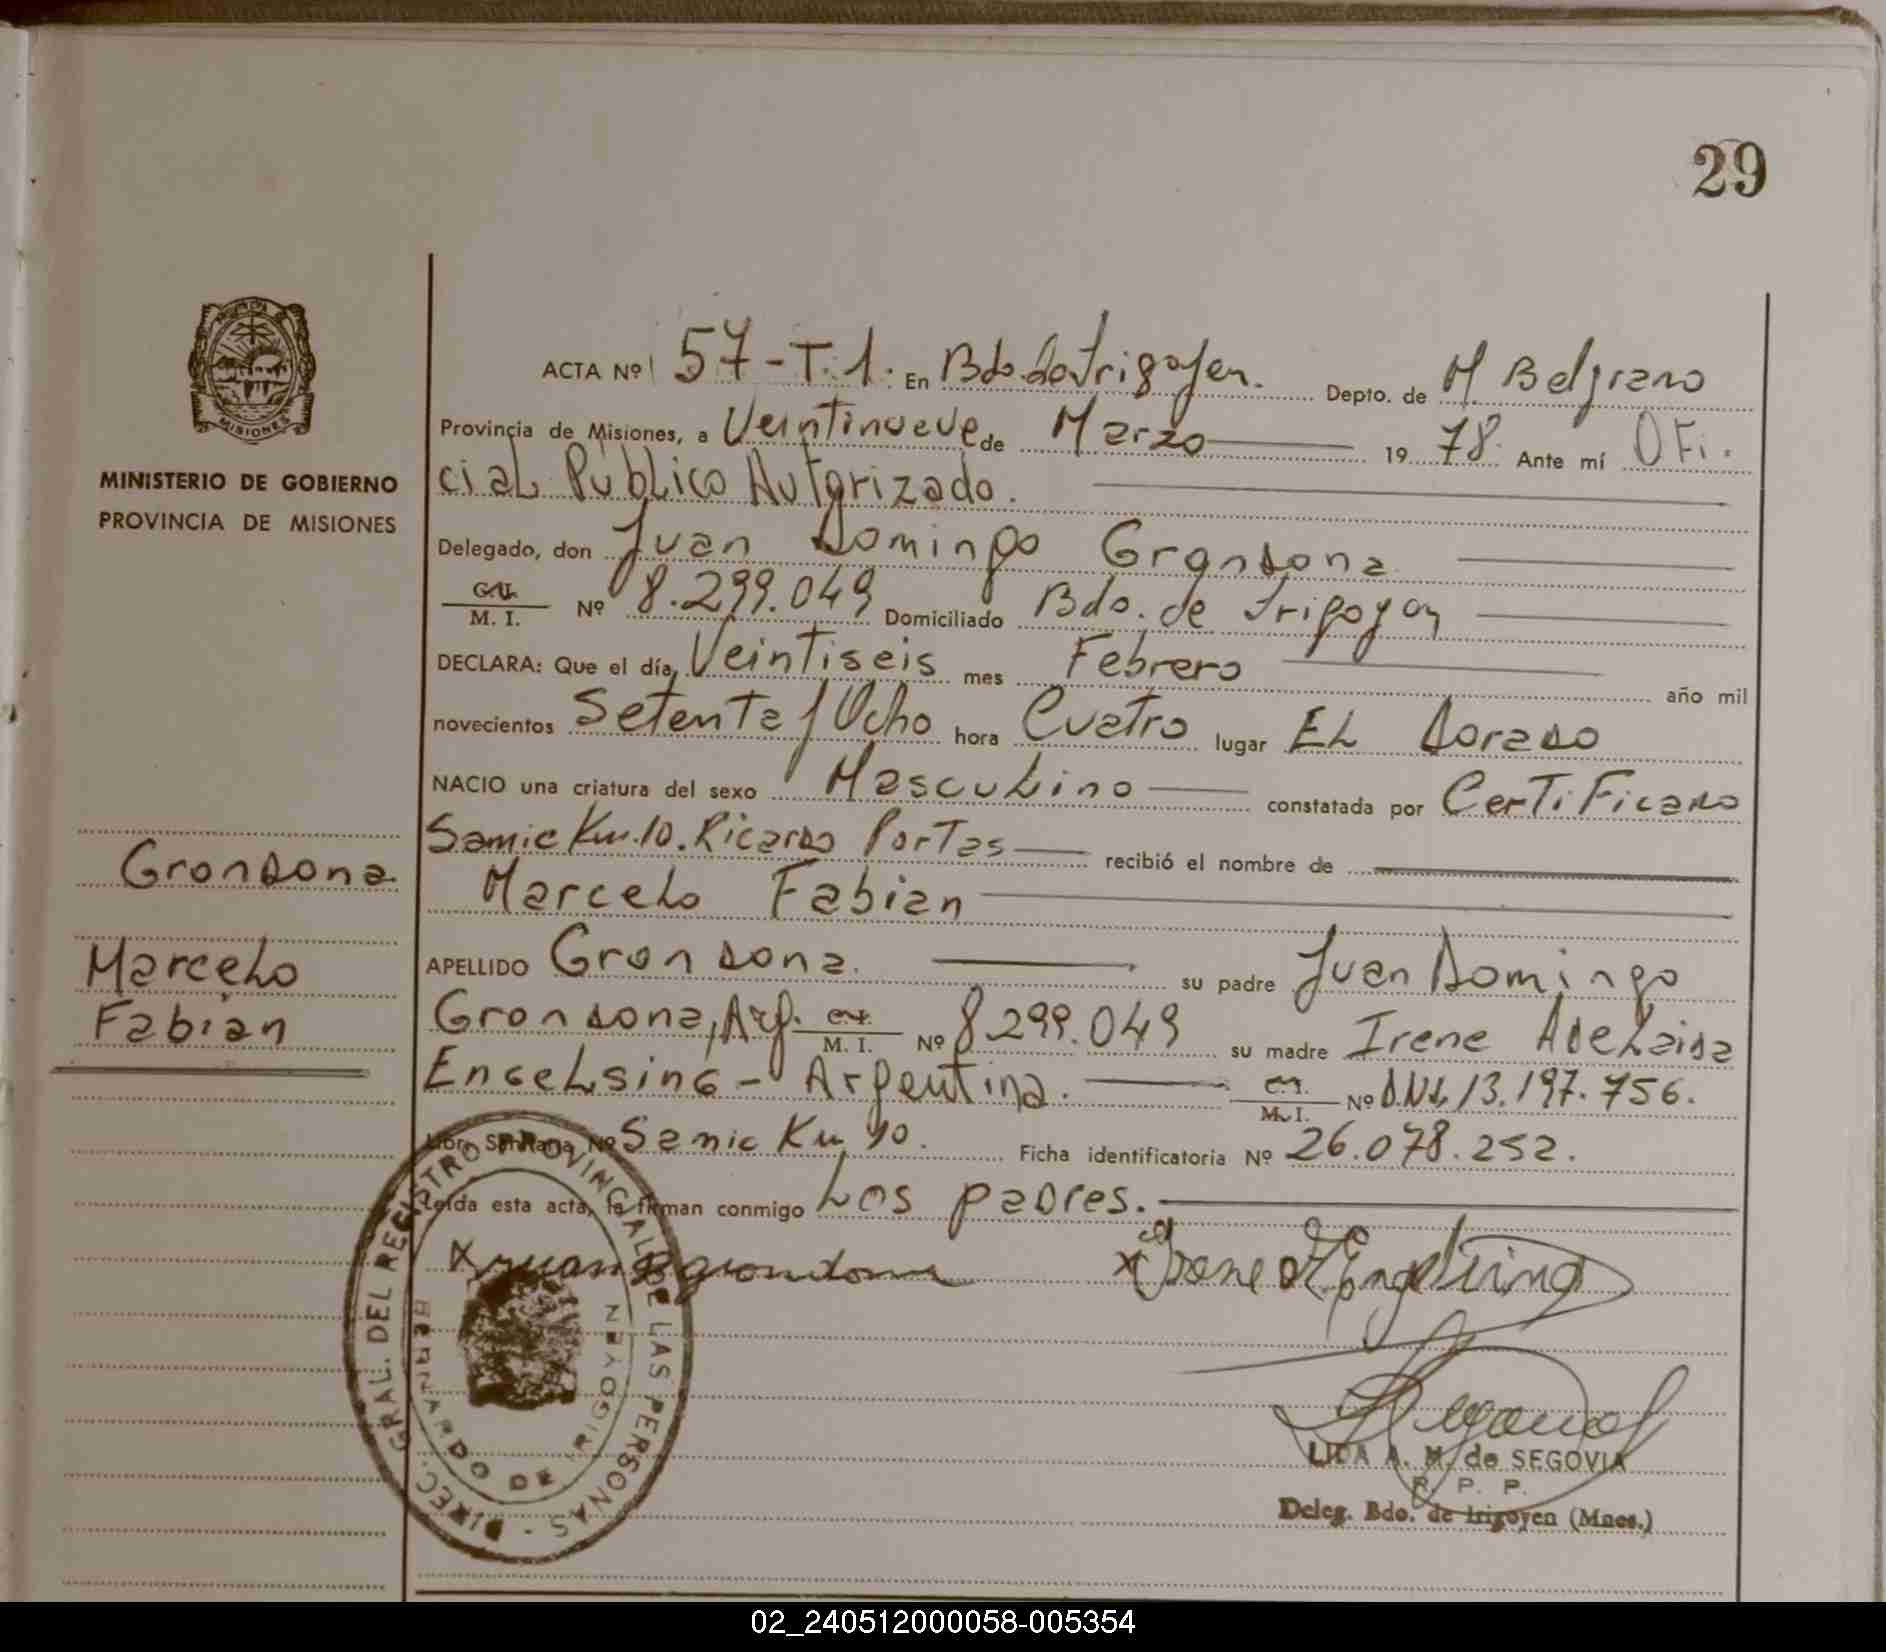 29
MISIONES
MINISTERIO DE GOBIERNO
PROVINCIA DE MISIONES
Grondona
Marcelo
Fabian
ACTA Nº 57-T.1. En Bdo. de Irigoyen. Depto. de M Belgrano
Provincia de Misiones, a Veintinueve de Marzo 1978. Ante mí Ofi.
cial Público Autorizado.
Delegado, don Juan Domingo Grondona
M. I. Nº 8.299.049 Domiciliado Bdo. de Irigoyen
DECLARA: Que el día, Veintiseis mes Febrero año mil
novecientos Setenta y Ocho hora Cuatro lugar EL Dorado
NACIO una criatura del sexo Masculino constatada por Certificado
Samic Km.10. Ricardo Portas recibió el nombre de
Marcelo Fabian
APELLIDO Grondona. su padre Juan Domingo
Grondona, Arg. M. I. Nº 8.299.049 su madre Irene Adelaida
Engelsing - Argentina. M. I. Nº D.N.I. 13.197.756.
Libr. Sanitaria Nº Samic Km 10. Ficha identificatoria Nº 26.078.252.
Leída esta acta, la firman conmigo Los padres.
x Juan D grondona x Irene A Engelsing
LIDA A. M. de SEGOVIA
R. P. P.
Deleg. Bdo. de Irigoyen (Mnes.)
DIREC. GRAL. DEL REGISTRO PROVINCIAL DE LAS PERSONAS -
BERNARDO DE IRIGOYEN
02_240512000058-005354